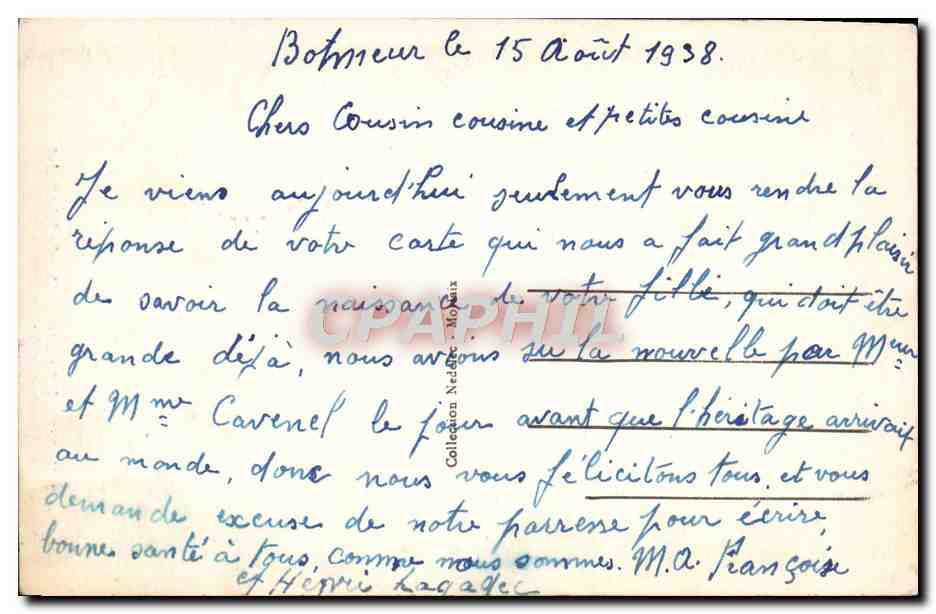 Botmeur le 15 Août 1938.
Chers Cousin cousine et petites cousine
Je viens aujourd'hui seulement vous rendre la
réponse de votre carte qui nous a fait grand plaisir
de savoir la naissance de votre fille, qui doit être
grande déjà, nous avions su la nouvelle par Mr
et Mme Cavenel le jour avant que l'héritage arrivait
au monde, donc nous vous félicitons tous, et vous
demande excuse de notre parresse pour écrire,
bonne santé à tous, comme nous sommes. M.A. Françoise
et Henri Lagadec
Collection Nédélec - Morlaix
CPAPHIL